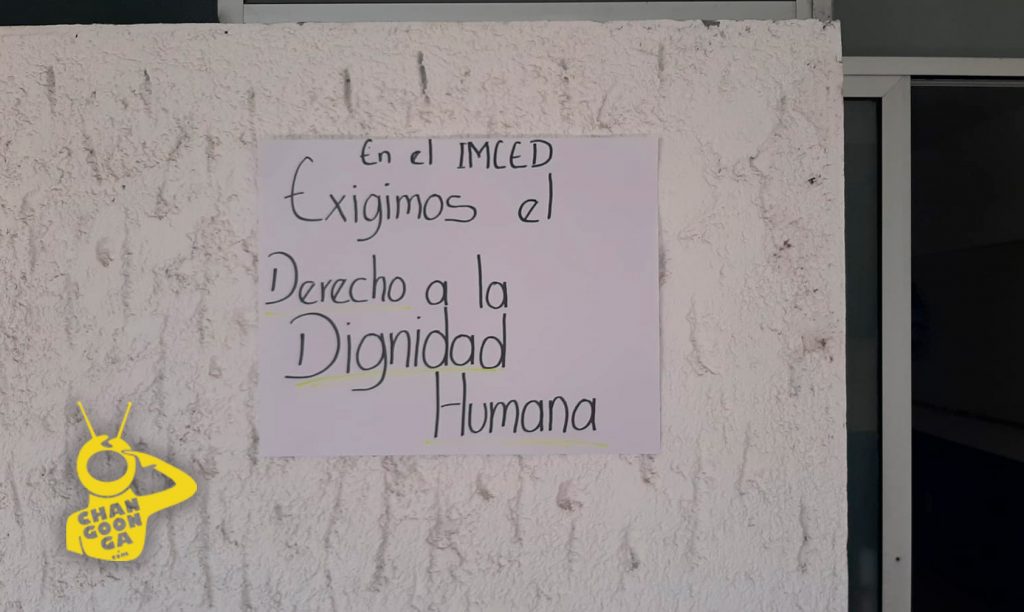 En el IMCED
Exigimos el
Derecho a la
Dignidad
Humana
CHAN
GOON
GA
.com